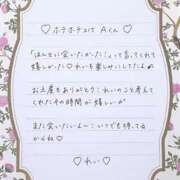 ♡ホテホテコスト Aくん♡
「ほんとに会いたかった♡」って言ってくれて
嬉しかった♡れいも楽しみにしてたよ
お土産もありがとう♡れいのコト考えて
くれたその時間が嬉しいが
また会いたいよ〜♡いつでも待ってる
からね♡
♡れい♡